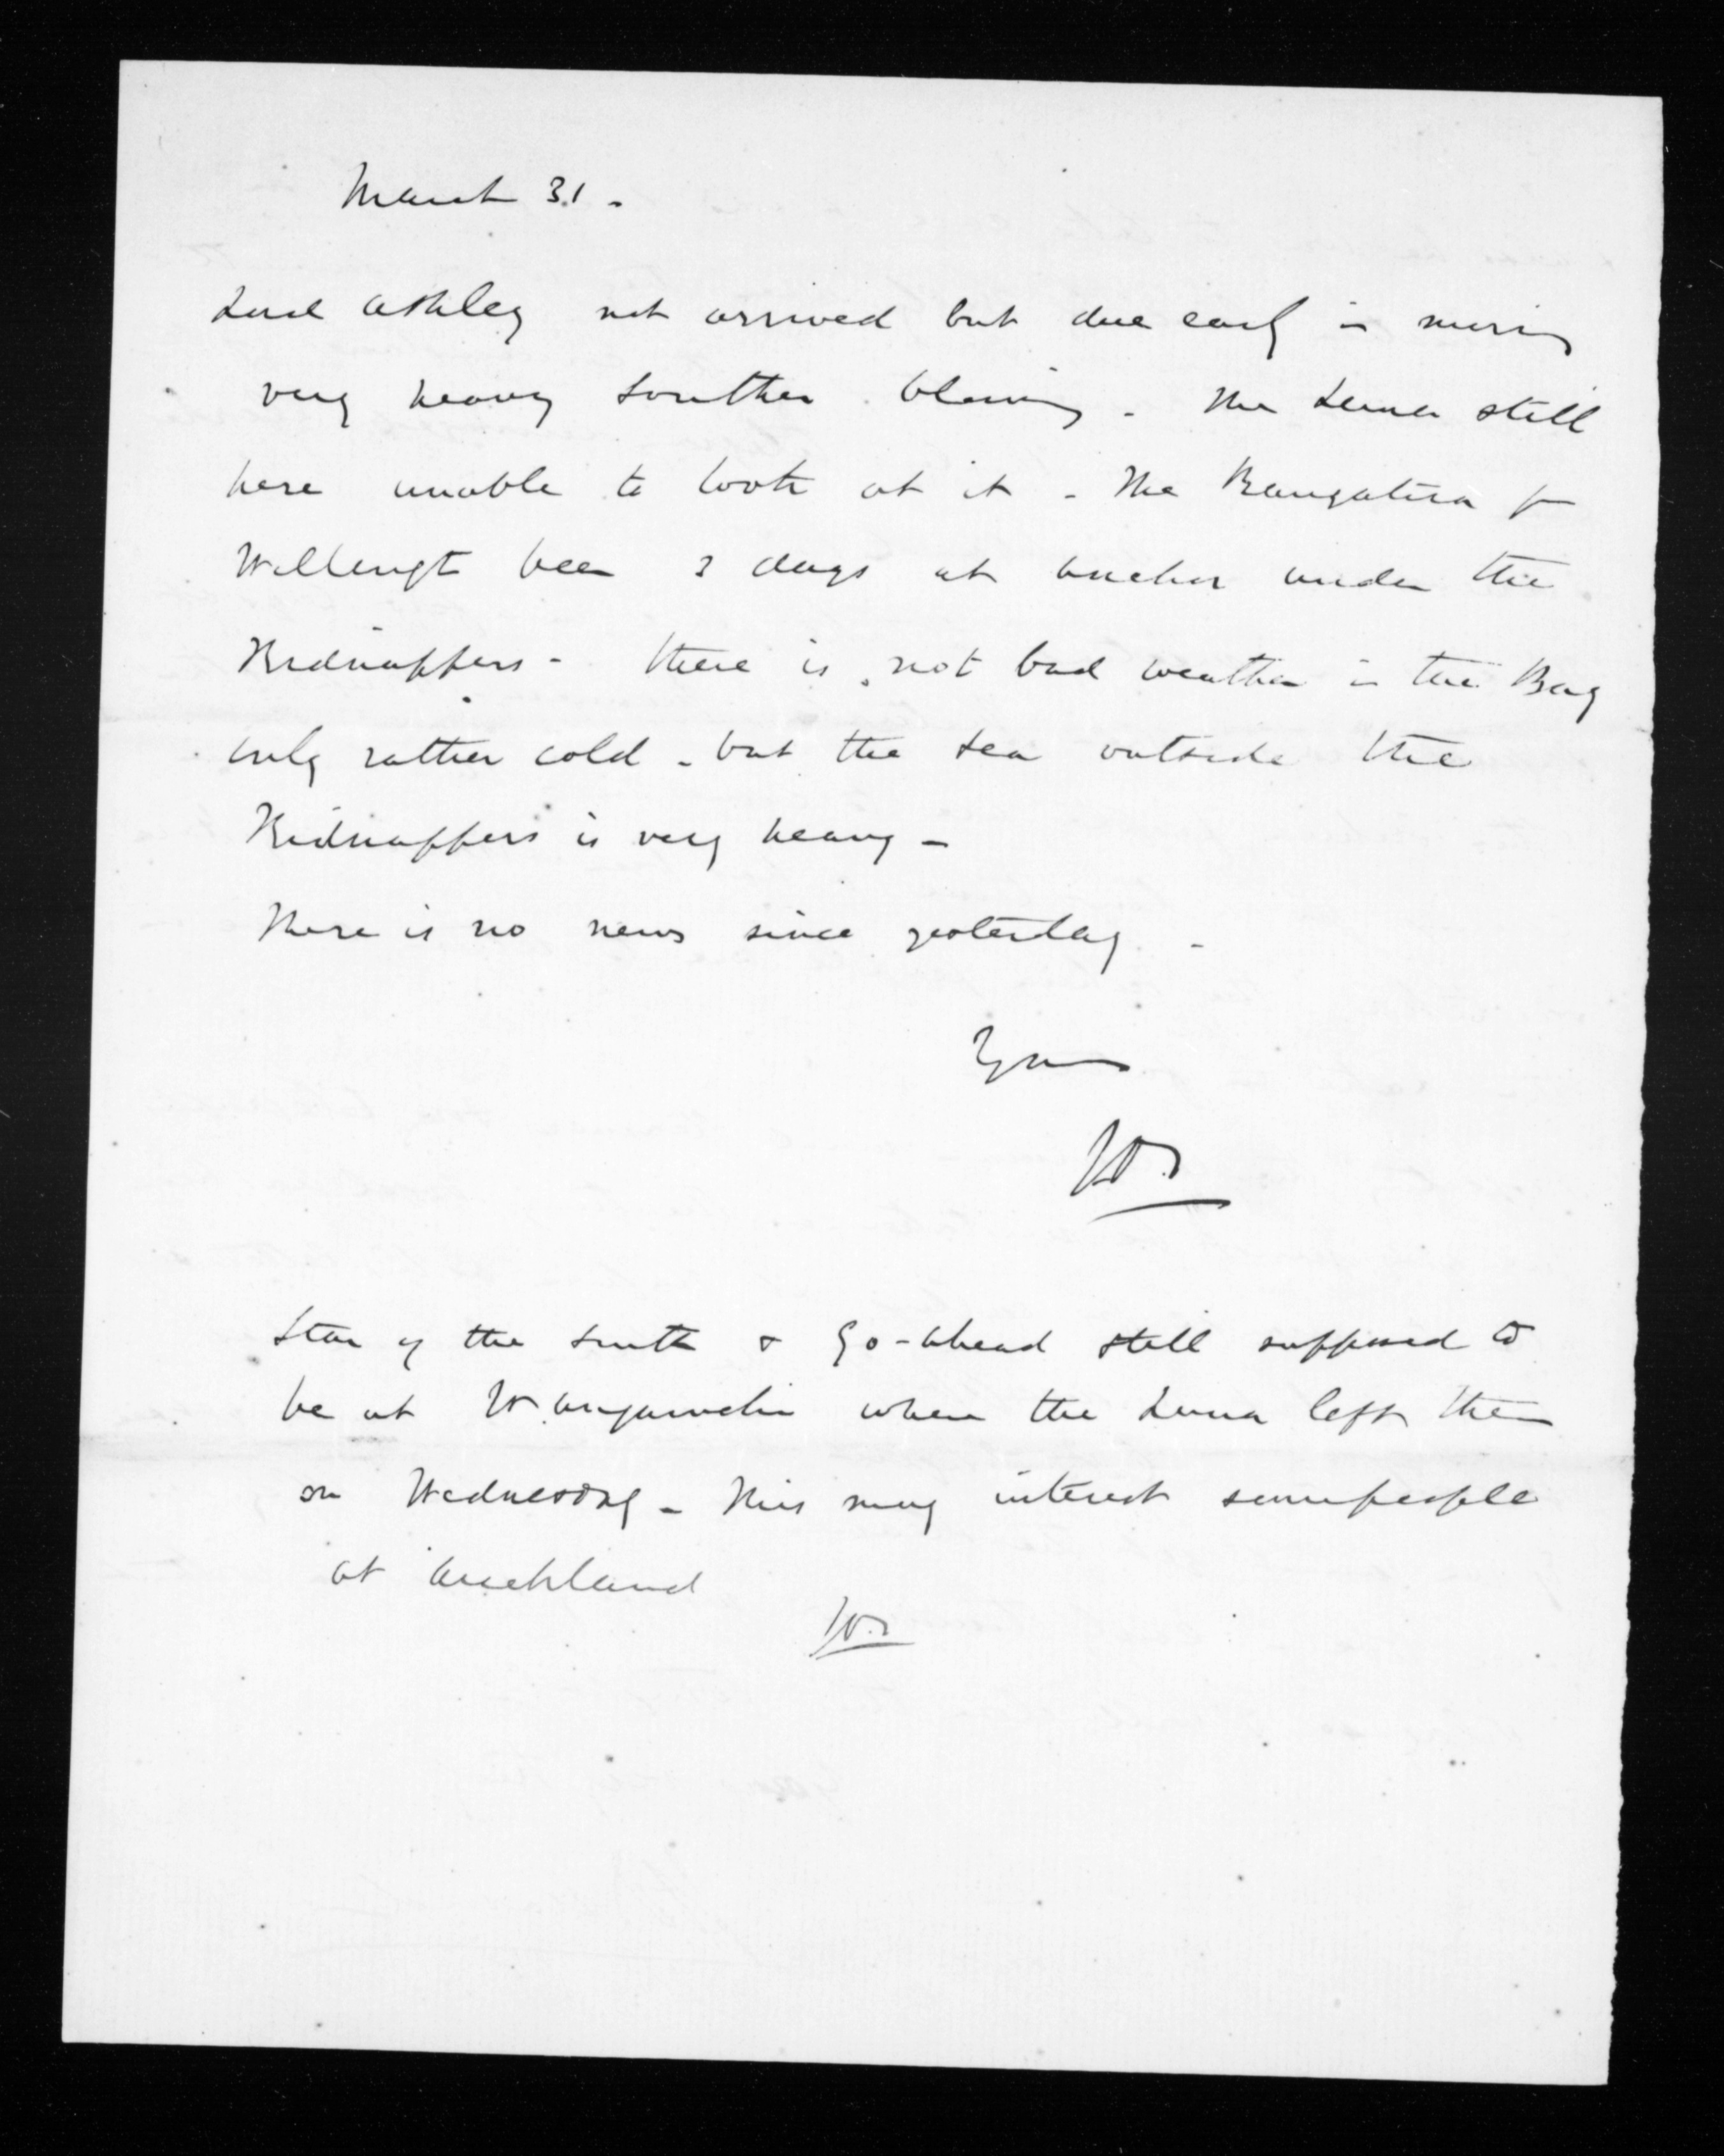 March 31 -
Lord Ashley not arrived but due early in morning
very heavy souther blowing - The Luna still
here unable to look at it - The Rangatira for
Wellingt been 3 days at anchor under the
Kidnappers - there is not bad weather in the Bay
only rather cold - but the sea outside the
Kidnappers is very heavy -
There is no news since yesterday -
Yours
Star of the South & Go-ahead still supposed to
be at where the Luna left them
on Wednesday - This may interest some people
at Auckland